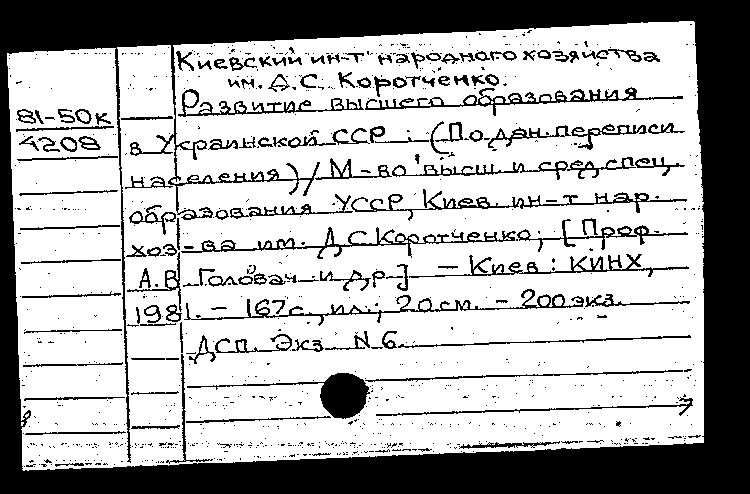 Киевский ин-т народного хозяйства
им. Д.С. Коротченко.
Развитие высшего образования
81-50к
4208
в Украинской ССР : (По дан. переписи
населения) / М-во высш. и сред. спец.
образования УССР, Киев. ин-т нар.
хоз-ва им. Д.С. Коротченко; [Проф.
А.В. Головач и др.] — Киев : КИНХ,
1981. — 167 с., ил.; 20 см. — 200 экз.
Дсп. Экз. N 6.